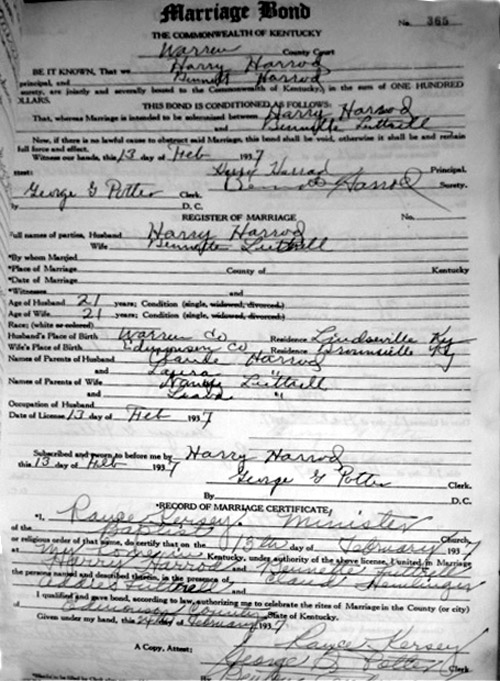 Marriage Bond
No. 365
THE COMMONWEALTH OF KENTUCKY
Warren County Court
BE IT KNOWN, That we Harry Harrod
principal, and Bennett Harrod
surety, are jointly and severally bound to the Commonwealth of Kentucky, in the sum of ONE HUNDRED
DOLLARS.
THIS BOND IS CONDITIONED AS FOLLOWS:
That, whereas Marriage is intended to be solemnized between Harry Harrod
and Bennette Luttrell
Now, if there is no lawful cause to obstruct said Marriage, this bond shall be void, otherwise it shall be and remain
full force and effect.
Witness our hands, this 13 day of Feb 1937
Attest: Harry Harrod Principal.
George G Potter Clerk. Harrod Surety.
By D. C.
REGISTER OF MARRIAGE No.
Full names of parties, Husband Harry Harrod
Wife Bennette Luttrell
*By whom Married
*Place of Marriage County of Kentucky
*Date of Marriage
*Witnesses and
Age of Husband 21 years; Condition (single, widowed, divorced.)
Age of Wife 21 years; Condition (single, widowed, divorced.)
Race; (white or colored)
Husband's Place of Birth Warren Co Residence Lindseville Ky
Wife's Place of Birth Edmonson Co Residence Brownsville Ky
Names of Parents of Husband Harrod
and "
Names of Parents of Wife Luttrell
and "
Occupation of Husband
Date of License 13 day of Feb 1937
Subscribed and sworn to before me by Harry Harrod
this 13 day of Feb 1937
George G Potter Clerk.
By D. C.
*RECORD OF MARRIAGE CERTIFICATE
*I, Rayce Kersey Minister
of the Baptist Church,
or religious order of that same, do certify that on the 13th day of February 1937
at My home in Kentucky, under authority of the above license, I united in Marriage
Harry Harrod and Luttrell
the persons named and described therein, in the presence of
and Claud
I qualified and gave bond, according to law, authorizing me to celebrate the rites of Marriage in the County (or city)
of Edmonson County State of Kentucky.
Given under my hand, this day of February 1937
Rayce Kersey
A Copy, Attest: George G Potter Clerk